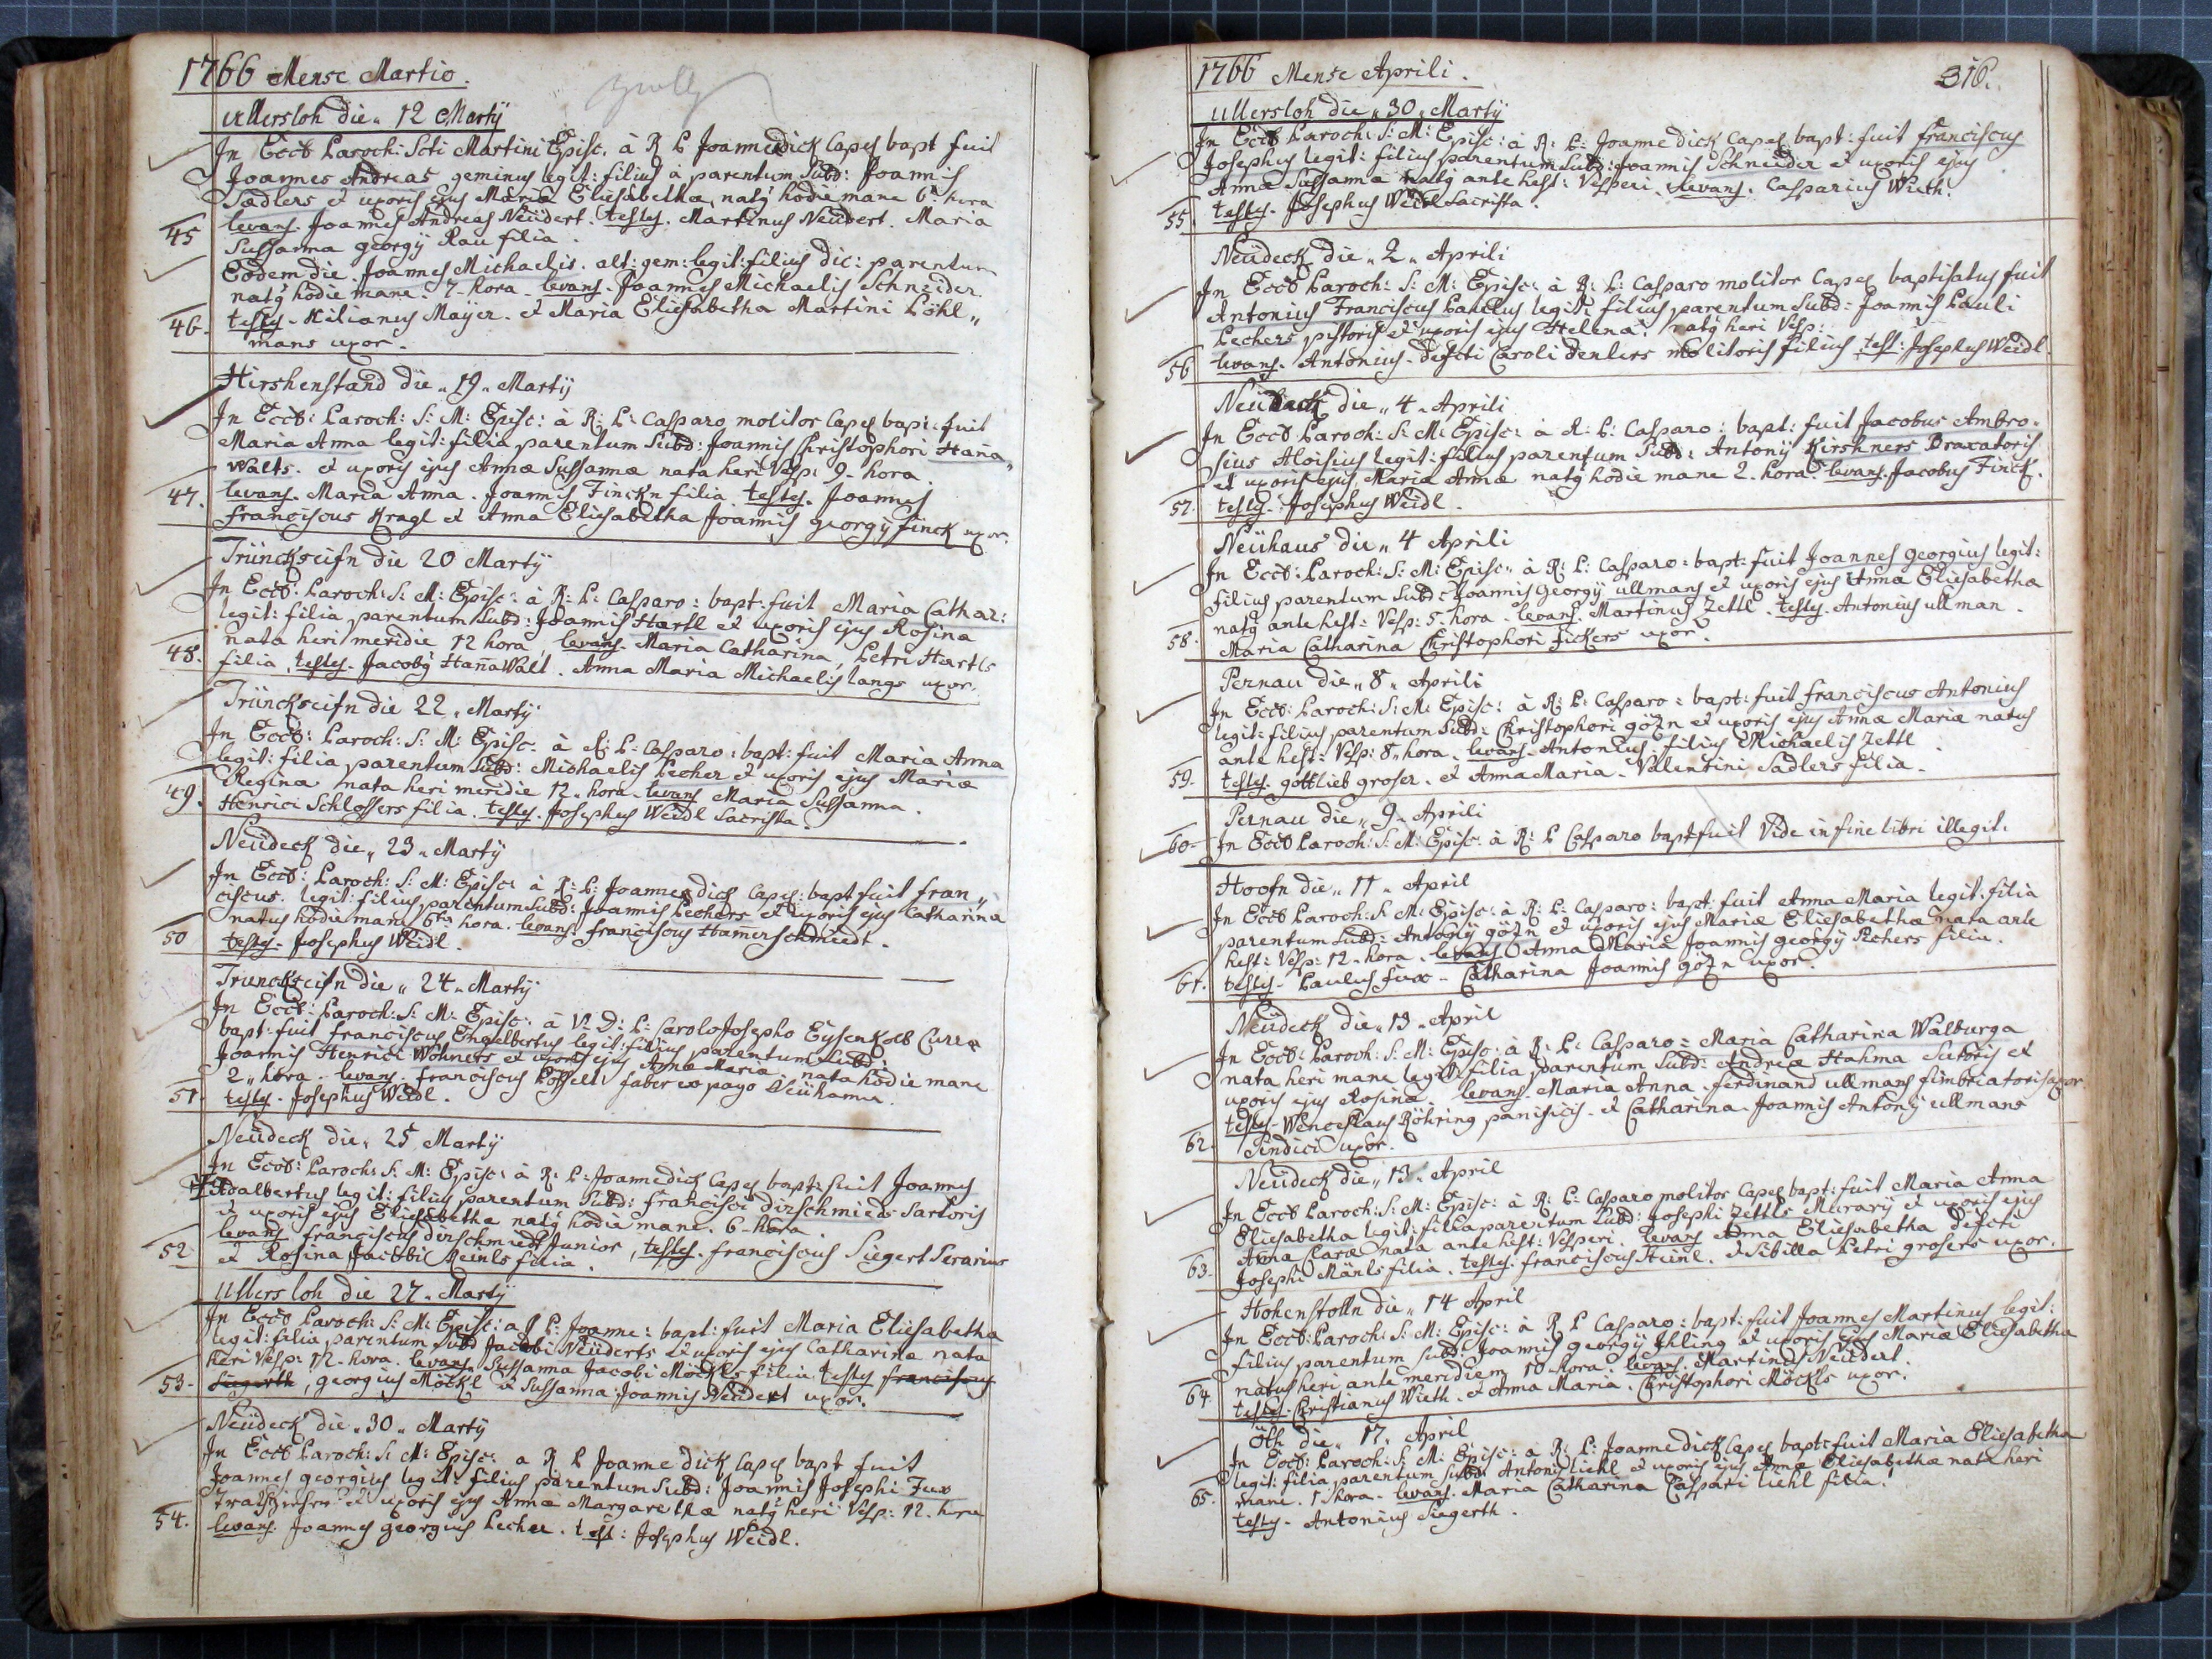 1766 Mense Martio.
Ullersloh die „ 12 Martÿ
In Eccł Paroch: Scti Martini Episc. à R P Joanne dick Capel bapt fuit
Joannes Andreas geminus legit: filius à parentum Subd: Joannis
Sadlers et uxoris ejus Maria Eliesabetha, natꝰ hodie mane 6ta hora
levans. Joannes Andreas Neüdert. testes. Martinus Neudert. Maria
45 Sussanna georgÿ Rau filia.
Eodem die. Joannes Michaelis. alt: gem: legit: filius dic: parentum
natꝰ hodie mane. 7 - hora - levans - Joannes Michaelis Schneider.
46. testes - Kilianus Mayer. et Maria Eliesabetha Martini Pöhl„
mans uxor.
Hirshenstand die „ 19 „ Martÿ
In Eccł: Paroch: S: M: Episc: à R: P: Casparo molitor Capel bapt: fuit
Maria Anna legit: filia parentum Subd: Joannis Christophori Hana„
walts. et uxoris ejus Annæ Sussannæ nata heri Vesp: 9 - hora.
47. levans. Maria Anna. Joannis Finckn filia testes. Joannes
Franciscus Kragl et Anna Eliesabetha Joannis georgÿ Finck uxor.
Trünckseifn die 20 Martÿ
In Eccł: Paroch: S: M: Episc: à R: P: Casparo: bapt: fuit Maria Cathar:
legit: filia parentum Subd: Joannis Hartl et uxoris ejus Rosina
nata heri meridie 12 hora, levans. Maria Catharina, Petri Hartls
48. filia, testes. Jacobꝰ HanaWalt. Anna Maria Michaelis Langs uxor.
Trünckseifn die 22 „ Martÿ
In Eccł: Paroch: S: M: Episc: à R: P: Casparo: bapt: fuit Maria Anna
legit: filia parentum Subd: Michaelis Pecher et uxoris ejus Mariæ
Reginæ nata heri meridie 12 - hora - levans Maria Sussanna
49. Henrici Schlossers filia. testes. Josephus Weidl Sacrista.
Neüdeck die „ 23 „ Martÿ
In Eccł: Paroch: S: M: Episc: à R: P: Joanne dick Capel: bapt fuit fran„
ciscus. legit: filius parentum Subd: Joannis Pechers et uxoris ejus Catharina
natus hodie mane 6ta hora. levans. franciscus Hamerschmiedt.
50 testes - Josephus Weidl.
Trünckseifn die „ 24 „ Martÿ
In Eccł: Paroch: S: M: Episc: à V: D: P: Carolo Josepho Eysenkolb Curra
bapt: fuit franciscus Engelbertus legit: filius parentum Subd:
Joannis Henrici Wohners et uxoris ejus Anna Maria, nata hodie mane
2 „ hora - levans. franciscus Posselt faber ex pago Neühama.
51. testes - Josephus Weidl.
Neüdeck die „ 25 Martÿ
In Eccł: Paroch: S: M: Episc: à R: P: Joanne dick Capel bapt: fuit Joannes
Adalbertus legit: filius parentum Subd: francisci dirschmieds Sartoris
et uxoris ejus Eliesabetha natꝰ hodie mane. 6 - hora
levans franciscus dirschmiedt Junior, testes. franciscus Siegert Serarius
52 et Rosina Jacobi Meinls filia.
Ullersloh die 27 „ Martÿ
In Eccł Paroch: S: M: Episc: à R P: Joanne: bapt: fuit Maria Eliesabetha
legit: filia parentum Subd Jacobi Neüderts et uxoris ejus Catharina nata
heri Vesp: 12 - hora. levans. Sussanna Jacobi Möckls filia testes franciscus
53 - Siegerth, georgius Möckl et Sussanna Joannis Neüdert uxor.
Neüdeck die „ 30 „ Martÿ
In Eccł Paroch: S: M: Episc: a R P Joanne dick Capel bapt fuit
Joannes georgius legit: filius parentum Subd: Joannis Josephi Fux
et uxoris ejus Annæ Margarethæ natꝰ heri Vesp: 12. hora
54. levans. Joannes georgius Pecher. test: Josephus Weidl.
1766 Mense Aprili. 316.
Ullersloh die „ 30 „ Martÿ
In Eccł Paroch: S: M: Episc: à R: P: Joanne dick Capel bapt: fuit franciscus
Josephus legit: filius parentum Subd: Joannis Schneider et uxoris ejus
Annæ Sussanna natꝰ ante hest: Vesperi. levans. Casparius Wieth.
55. testes - Josephus Weidl Sacrista.
Neüdeck die „ 2 „ Aprili
In Eccł Paroch: S: M: Episc: à R: P: Casparo molitor Capel baptisatus fuit
Antonius Franciscus Paulus legit: filius parentum Subd: Joannis Pauli
Pechers pistoris et uxoris ejus Helena. natꝰ heri Vesp:
56 levans. Antonius - defcti Caroli denlers molitoris filius test: Josephus Weidl
Neüdeck die „ 4 „ Aprili
In Eccł Paroch: S: M: Episc: à R: P: Casparo: bapt: fuit Jacobus Ambro„
sius Aloisius legit: filius parentum Subd: Antonÿ Kirshners Braxatoris
et uxoris ejus Maria Annæ natꝰ hodie mane 2. hora. levans. Jacobus Finck.
57. testes - Josephus Weidl.
Neühaus die „ 4 Aprili
In Eccł: Paroch: S: M: Episc: à R: P: Casparo: bapt: fuit Joannes georgius legit:
filius parentum Subd: Joannis georgÿ ullmans et uxoris ejus Anna Eliesabetha
natꝰ ante hest: Vesp: 5 - hora - levans. Martinus Zettl. testes. Antonius ullman.
58. Maria Catharina Christophori Fickers uxor.
Pernau die „ 8 „ Aprili
In Eccł: Paroch: S: M: Episc: à R: P: Casparo: bapt: fuit franciscus Antonius
legit: filius parentum Subd: Christophori götzn et uxoris ejus Annæ Mariæ natus
ante hest: Vesp: 8 „ hora. levans. Antonius. filius Michaelis Zettl
59. testes. gottlieb groser. et Anna Maria - Valentini Sadlers filia.
Pernau die „ 9 „ Aprili
60 - In Eccł Paroch: S: M: Episc: à R: P Casparo bapt fuit Vide in fine libri illegit:
Hoofn die „ 11 „ April
In Eccł Paroch: S: M: Episc: à R: P: Casparo: bapt: fuit Anna Maria legit: filia
parentum Subd: Antonÿ götzn et uxoris ejus Mariæ Eliesabethæ nata ante
hest: Vesp: 12 - hora. levans Anna Maria Joannis georgÿ Pechers filia.
61. testes - Paulus fux - Catharina Joannis götzn uxor.
Neüdeck die „ 13 „ April
In Eccł: Paroch: S: M: Episc: à R: P: Casparo: Maria Catharina Walburga
nata heri mane legit: filia parentum Subd: Andreæ Hahma Sutoris et
uxoris ejus Rosina. levans Maria Anna. ferdinand ullmans fimbriatoris uxor.
testes - Wenceslaus Röhring panisicis. et Catharina Joannis Antonÿ ullmans
62. Sindici uxor.
Neüdeck die „ 13 „ April
In Eccł Paroch: S: M: Episc: à R: P: Casparo molitor Capel bapt: fuit Maria Anna
Eliesabetha legit: filia parentum Subd: Josephi Zettls Murarÿ et uxoris ejus
Anna Claræ nata ante hest: Vesperi. levans Anna Eliesabetha defcti
63 - Josephi Mänls filia. testes. franciscus Heinl. et Sibilla Petri grosers uxor.
Hohenstolln die „ 14 April
In Eccł: Paroch: S: M: Episc: à R P Casparo: bapt: fuit Joannes Martinus legit:
filius parentum Subd Joannis georgÿ Ihling et uxoris ejus Mariæ Eliesabetha
natus heri ante meridiem 10 - hora. levans. Martinus Neüdert.
64 testes - Christianus Wieth - et Anna Maria. Christophori Möckls uxor.
öth die „ 17 „ April
In Eccł: Paroch: S: M: Episc: a R: P: Joanne dick Capel bapt: fuit Maria Eliesabetha
legit: filia parentum Subd: Antonÿ liehl et uxoris ejus Annæ Eliesabethæ nata heri
65. mane. 1 hora. levans. Maria Catharina Caspari liehl filia.
testes - Antonius Siegerth.